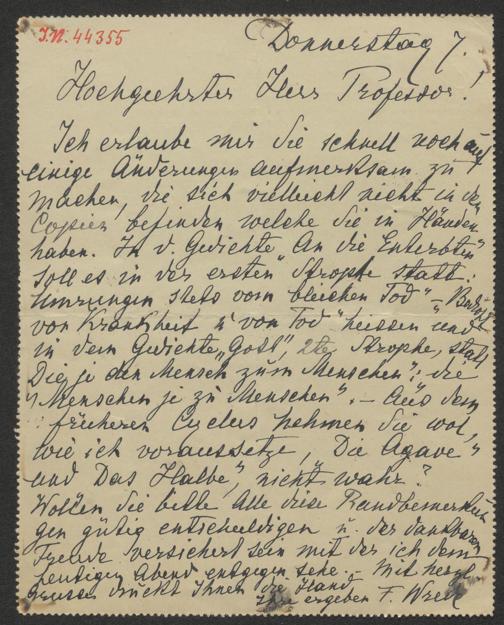 I.N. 44355
Donnerstag 7.
Hochgeehrter Herr Professor!
Ich erlaube mir Sie schnell noch auf
einige Änderungen aufmerksam zu
machen, die sich vielleicht nicht in den
Copien befinden welche Sie in Händen
haben. In d. Gedichte "An die Enterbten"
soll es in der ersten Strophe statt:
Umrungen stets vom bleichen Tod" –
von Krankheit u von Tod" heissen und
in dem Gedichte „Gott", 2te Strophe, statt
Die je den Mensch zum Menschen": die
"Menschen je zu Menschen". – Aus dem
früheren Cyclus nehmen Sie wol,
wie ich voraussetze, „Die Agave"
und Das Halbe", nicht wahr?
Wollen Sie bitte alle diese Randbemerkun
gen gütig entschuldigen u. der dankbaren
Freude versichert sein mit der ich dem
heutigen Abend entgegen sehe. – Mit herzl.
Grüssen drückt Ihnen die Hand
Ihr ergeben F.